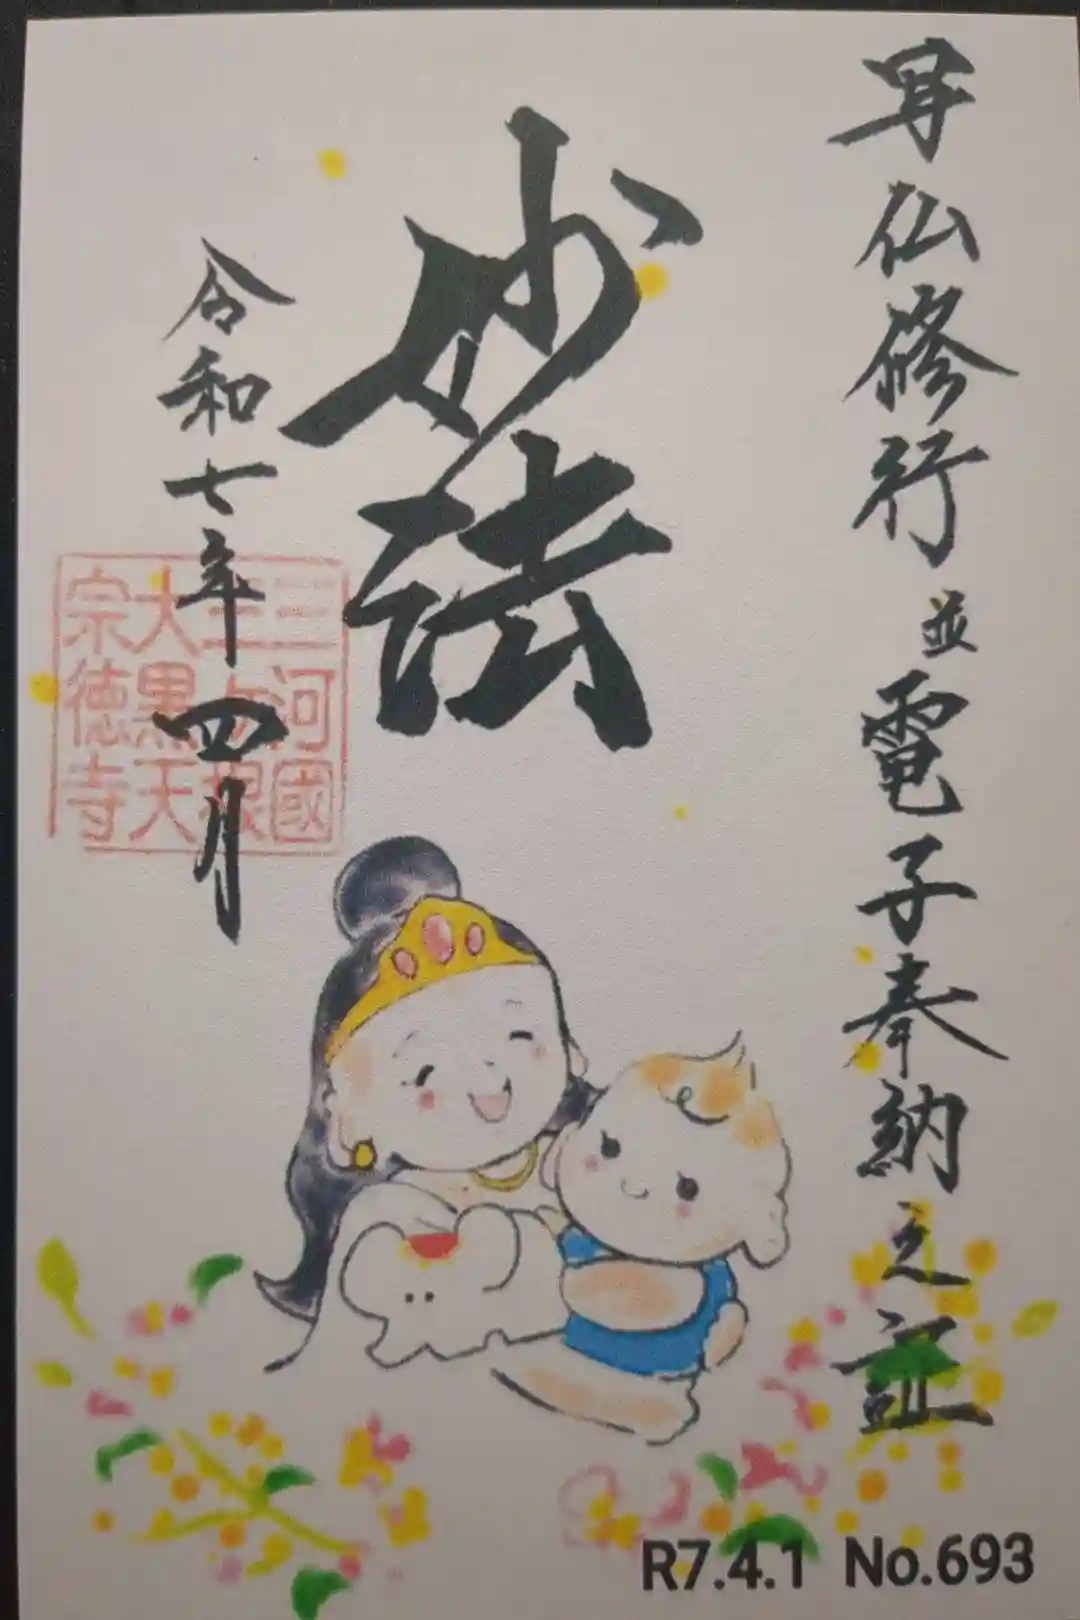 写仏修行並電子奉納之証
妙法
令和七年四月
三河國
三ヶ根
大黒天
宗徳寺
R7.4.1 No.693